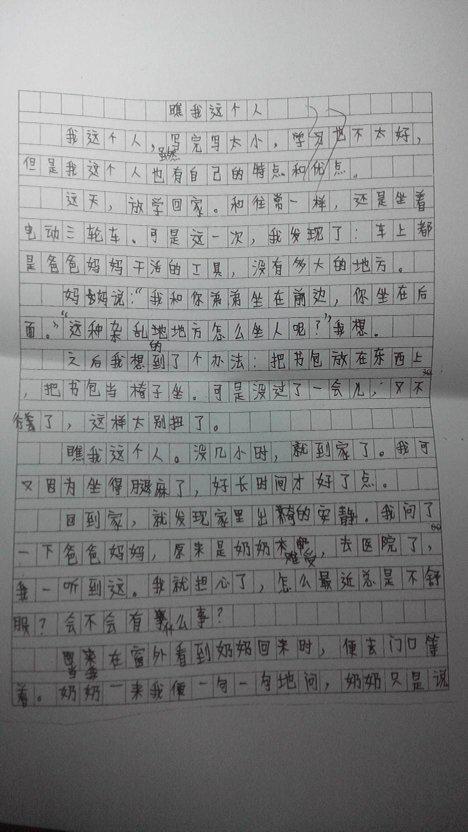 瞧我这个人
我这个人，虽然写完写太小，学习也不太好，
但是我这个人也有自己的特点和优点。
这天，放学回家。和往常一样，还是坐着
电动三轮车。可是这一次，我发现了：车上都
是爸爸妈妈干活的工具，没有多大的地方。
妈妈说：“我和你弟弟坐在前边，你坐在后
面。”“这种杂乱的地方怎么坐人呢？”我想。
之后我想到了个办法：把书包放在东西上
，把书包当椅子坐。可是没过了一会儿，又不
行了，这样太别扭了。
瞧我这个人。没几小时，就到家了。我可
又因为坐得腿麻了，好长时间才好了点。
回到家，就发现家里出奇的安静。我问了
一下爸爸妈妈，原来是奶奶难受，去医院了，
我一听到这。我就担心了，怎么最近总是不舒
服？会不会有什么事？
当我在窗外看到奶奶回来时，便去门口等
着。奶奶一来我便一句一句地问，奶奶只是说